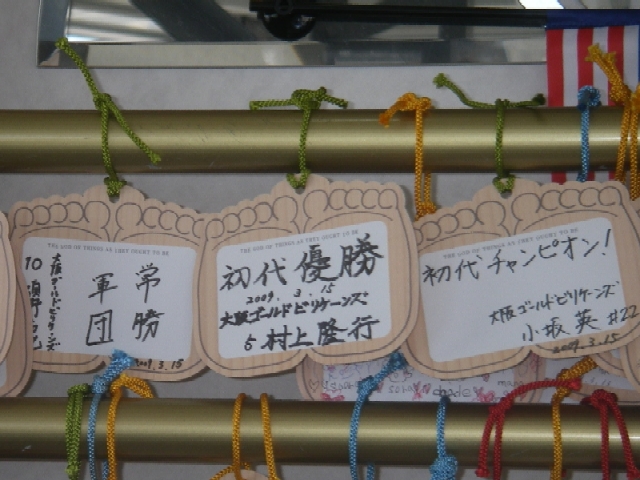 常勝
軍団
大阪ゴールドビリケーンズ
10
2009.3.15
THE GOD OF THINGS AS THEY OUGHT TO BE
初代優勝
2009.3.15
大阪ゴールドビリケーンズ
5 村上隆行
THE GOD OF THINGS AS THEY OUGHT TO BE
初代チャンピオン!
大阪ゴールドビリケーンズ
小坂英 #22
2009.3.15